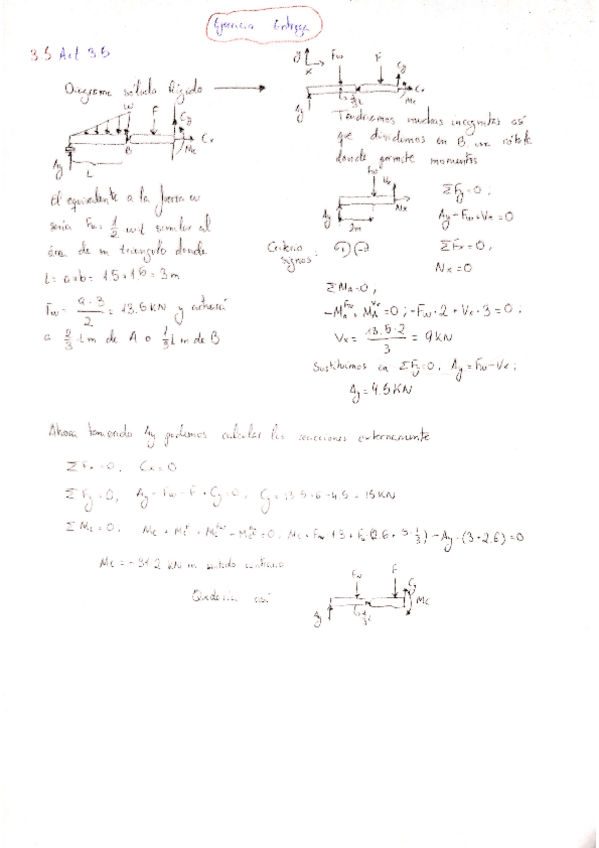 Ejercicio Entrega
3.5 Act 3.5
Diagrama sólido Rígido
y
x
Fw
F
Cy
Cx
Mc
Ay
W
F
Cy
Cx
Mc
B
Ay
L
Tendríamos muchas incognitas así
que dividimos en B, una rótula
donde permite momentos
El equivalente a la fuerza w
sería Fw = 1/2 w·L similar al
área de un triangulo donde
L = a+b = 1.5 + 1.5 = 3 m
Fw = 9·3/2 = 13.5 kN y actuará
a 2/3 L m de A o 1/3 L m de B
Fw
Nx
Ay
2m
Criterio
signos:
ΣFy = 0;
Ay - Fw + Vx = 0
ΣFx = 0;
Nx = 0
ΣMA = 0;
-Fw·2 + Vx·3 = 0;
Vx = 13.5·2/3 = 9 kN
Sustituimos en ΣFy=0, Ay = Fw - Vx;
Ay = 4.5 KN
Ahora teniendo Ay podemos calcular las reacciones externamente
ΣFx = 0, Cx = 0
ΣFy = 0, Ay - Fw - F + Cy = 0, Cy = 13.5 + 6 - 4.5 = 15 KN
ΣMc = 0;
- Ay·(3 + 2.6) = 0
Mc = -31.2 kN m sentido contrario
Quedaría así
Fw
F
Cy
Mc
Ay